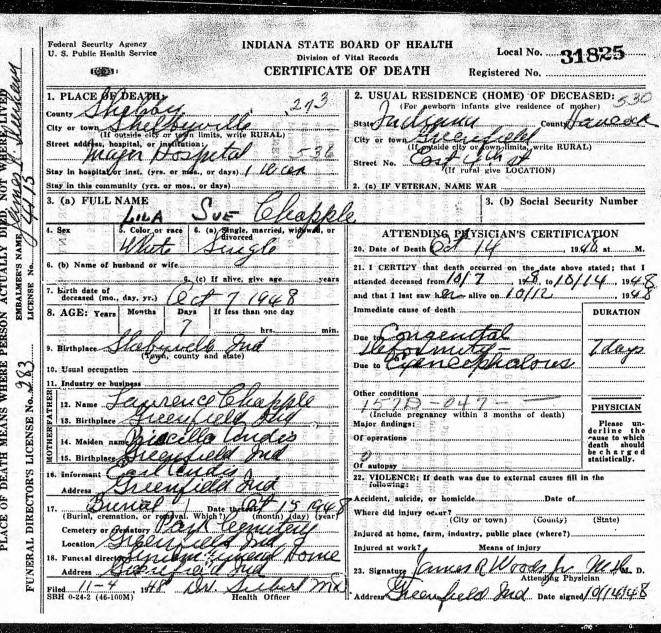 Federal Security Agency
U. S. Public Health Service
INDIANA STATE BOARD OF HEALTH
Division of Vital Records
CERTIFICATE OF DEATH
Local No. 31825
Registered No.
1. PLACE OF DEATH:
County Shelby 273
City or town Shelbyville
(If outside city or town limits, write RURAL)
Street address, hospital, or institution:
Major Hospital 536
Stay in hospital or inst. (yrs. or mos., or days) 1 week
Stay in this community (yrs. mos., or days)
2. USUAL RESIDENCE (HOME) OF DECEASED: 530
(For newborn infants give residence of mother)
State Indiana County Hancock
City or town Greenfield
(If outside city or town limits, write RURAL)
Street No. East 4th St
(If rural give LOCATION)
2. (a) IF VETERAN, NAME WAR
3. (a) FULL NAME
LILA SUE Chapple
3. (b) Social Security Number
4. Sex
5. Color or race
White
6. (a) Single, married, widowed, or divorced
Single
6. (b) Name of husband or wife
6. (c) If alive, give age years
7. Birth date of deceased (mo., day, yr.) Oct 7 1948
8. AGE: Years Months Days If less than one day
7 hrs. min.
9. Birthplace Shelbyville Ind
(Town, county and state)
10. Usual occupation
11. Industry or business
FATHER
12. Name Lawrence Chapple
13. Birthplace Greenfield Ind
MOTHER
14. Maiden name
15. Birthplace Greenfield Ind
16. Informant
Address Greenfield Ind
17. Burial Date thereof Oct 15 1948
(Burial, cremation, or removal. Which?) (month) (day) (year)
Cemetery or Crematory Park Cemetery
Location Greenfield Ind
18. Funeral director Funeral Home
Address Greenfield Ind
Filed 11-4 1948 Dr. M.D.
SBH 0-24-2 (46-100M) Health Officer
ATTENDING PHYSICIAN'S CERTIFICATION
20. Date of Death Oct 14 1948 at M.
21. I CERTIFY that death occurred on the date above stated; that I
attended deceased from 10/7, 48, to 10/14, 1948
and that I last saw her alive on 10/12, 1948
Immediate cause of death
DURATION
Due to Congenital
Deformity 7 days
Due to
Other conditions
157B-047-
(Include pregnancy within 3 months of death)
Major findings:
Of operations
0
Of autopsy
PHYSICIAN
Please un-
derline the
cause to which
death should
be charged
statistically.
22. VIOLENCE: If death was due to external causes fill in the
following:
Accident, suicide, or homicide Date of
Where did injury occur?
(City or town) (County) (State)
Injured at home, farm, industry, public place (where?)
Injured at work? Means of injury
23. Signature James R Woods Jr M.D.
Attending Physician
Address Greenfield Ind Date signed 10/16/48
PLACE OF DEATH MEANS WHERE PERSON ACTUALLY DIED, NOT WHERE LIVED
EMBALMER'S NAME James
LICENSE No.
FUNERAL DIRECTOR'S LICENSE No. 283